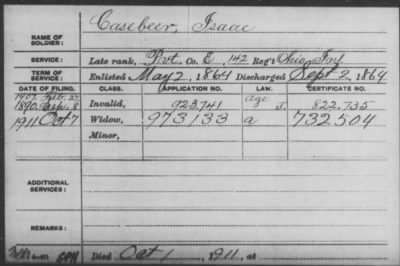 NAME OF SOLDIER: Casebeer, Isaac
SERVICE: Late rank, Pvt. Co. E, 142 Reg't Ohio Inf.
TERM OF SERVICE: Enlisted May 2, 1864 Discharged Sept 2, 1864
DATE OF FILING. CLASS. APPLICATION NO. LAW. CERTIFICATE NO.
1907 Feb. age
1890 Sep. 8 Invalid, 923,741 J. 822,735
1911 Oct 7 Widow, 973133 a 732504
Minor,
ADDITIONAL SERVICES:
REMARKS:
Died Oct 1, 1911, at